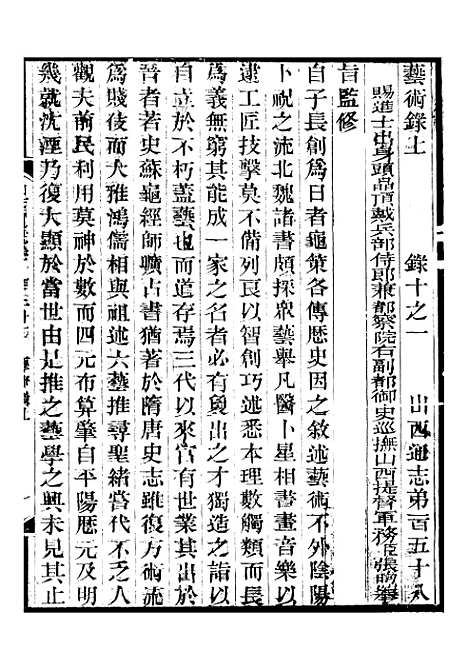 藝術錄上　錄十之一　山西通志第百五十八
賜進士出身頭品頂戴兵部侍郎兼都察院右副都御史巡撫山西提督軍務臣張煦奉
旨監修
自子長創爲日者龜策各傳歷史因之敘述藝術不外陰陽
卜祝之流北魏諸書頗採眾藝舉凡醫卜星相書畫音樂以
逮工匠技擊莫不備列良以智創巧述悉本理數觸類而長
爲義無窮其其成一家之名者必有夐出之才獨造之詣以
自立於不朽蓋藝也而道存焉三代以來官有世業其其於
晉者若史蘇龜經師曠占書猶存於隋唐史志雖復方術流
爲賤伎而大雅鴻儒相與祖述六藝推尋聖緒當代不乏人
觀夫前民利用莫神於數而四元布算肇自平陽歷元及明
幾就沈湮乃復大顯於當世由是推之藝學之興未見其止